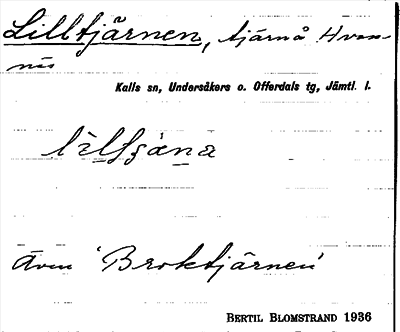 Lilltjärnen, tjärn å Hvon-
näs
Kalls sn, Undersåkers o. Offerdals tg, Jämtl. l.
Även 'Broktjärnen'
BERTIL BLOMSTRAND 1936